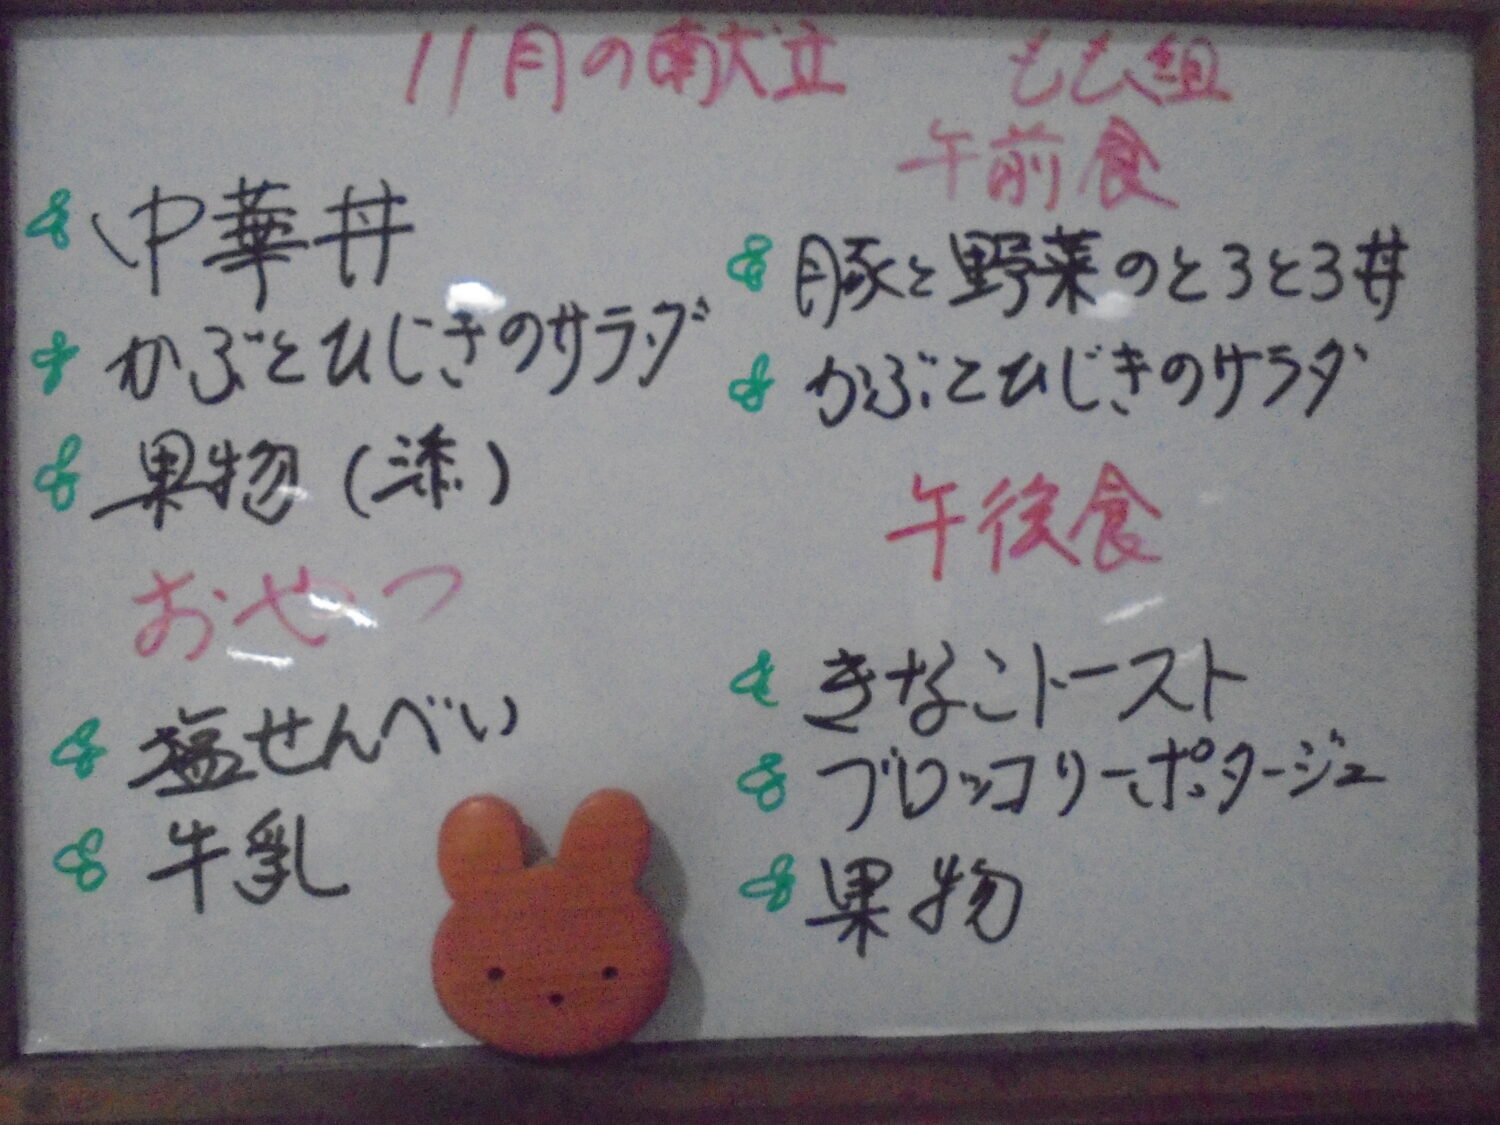 11月の献立
中華丼
かぶとひじきのサラダ
果物
おやつ
塩せんべい
牛乳
もも組
午前食
豚と野菜のとろとろ丼
かぶとひじきのサラダ
午後食
きなこトースト
ブロッコリーポタージュ
果物